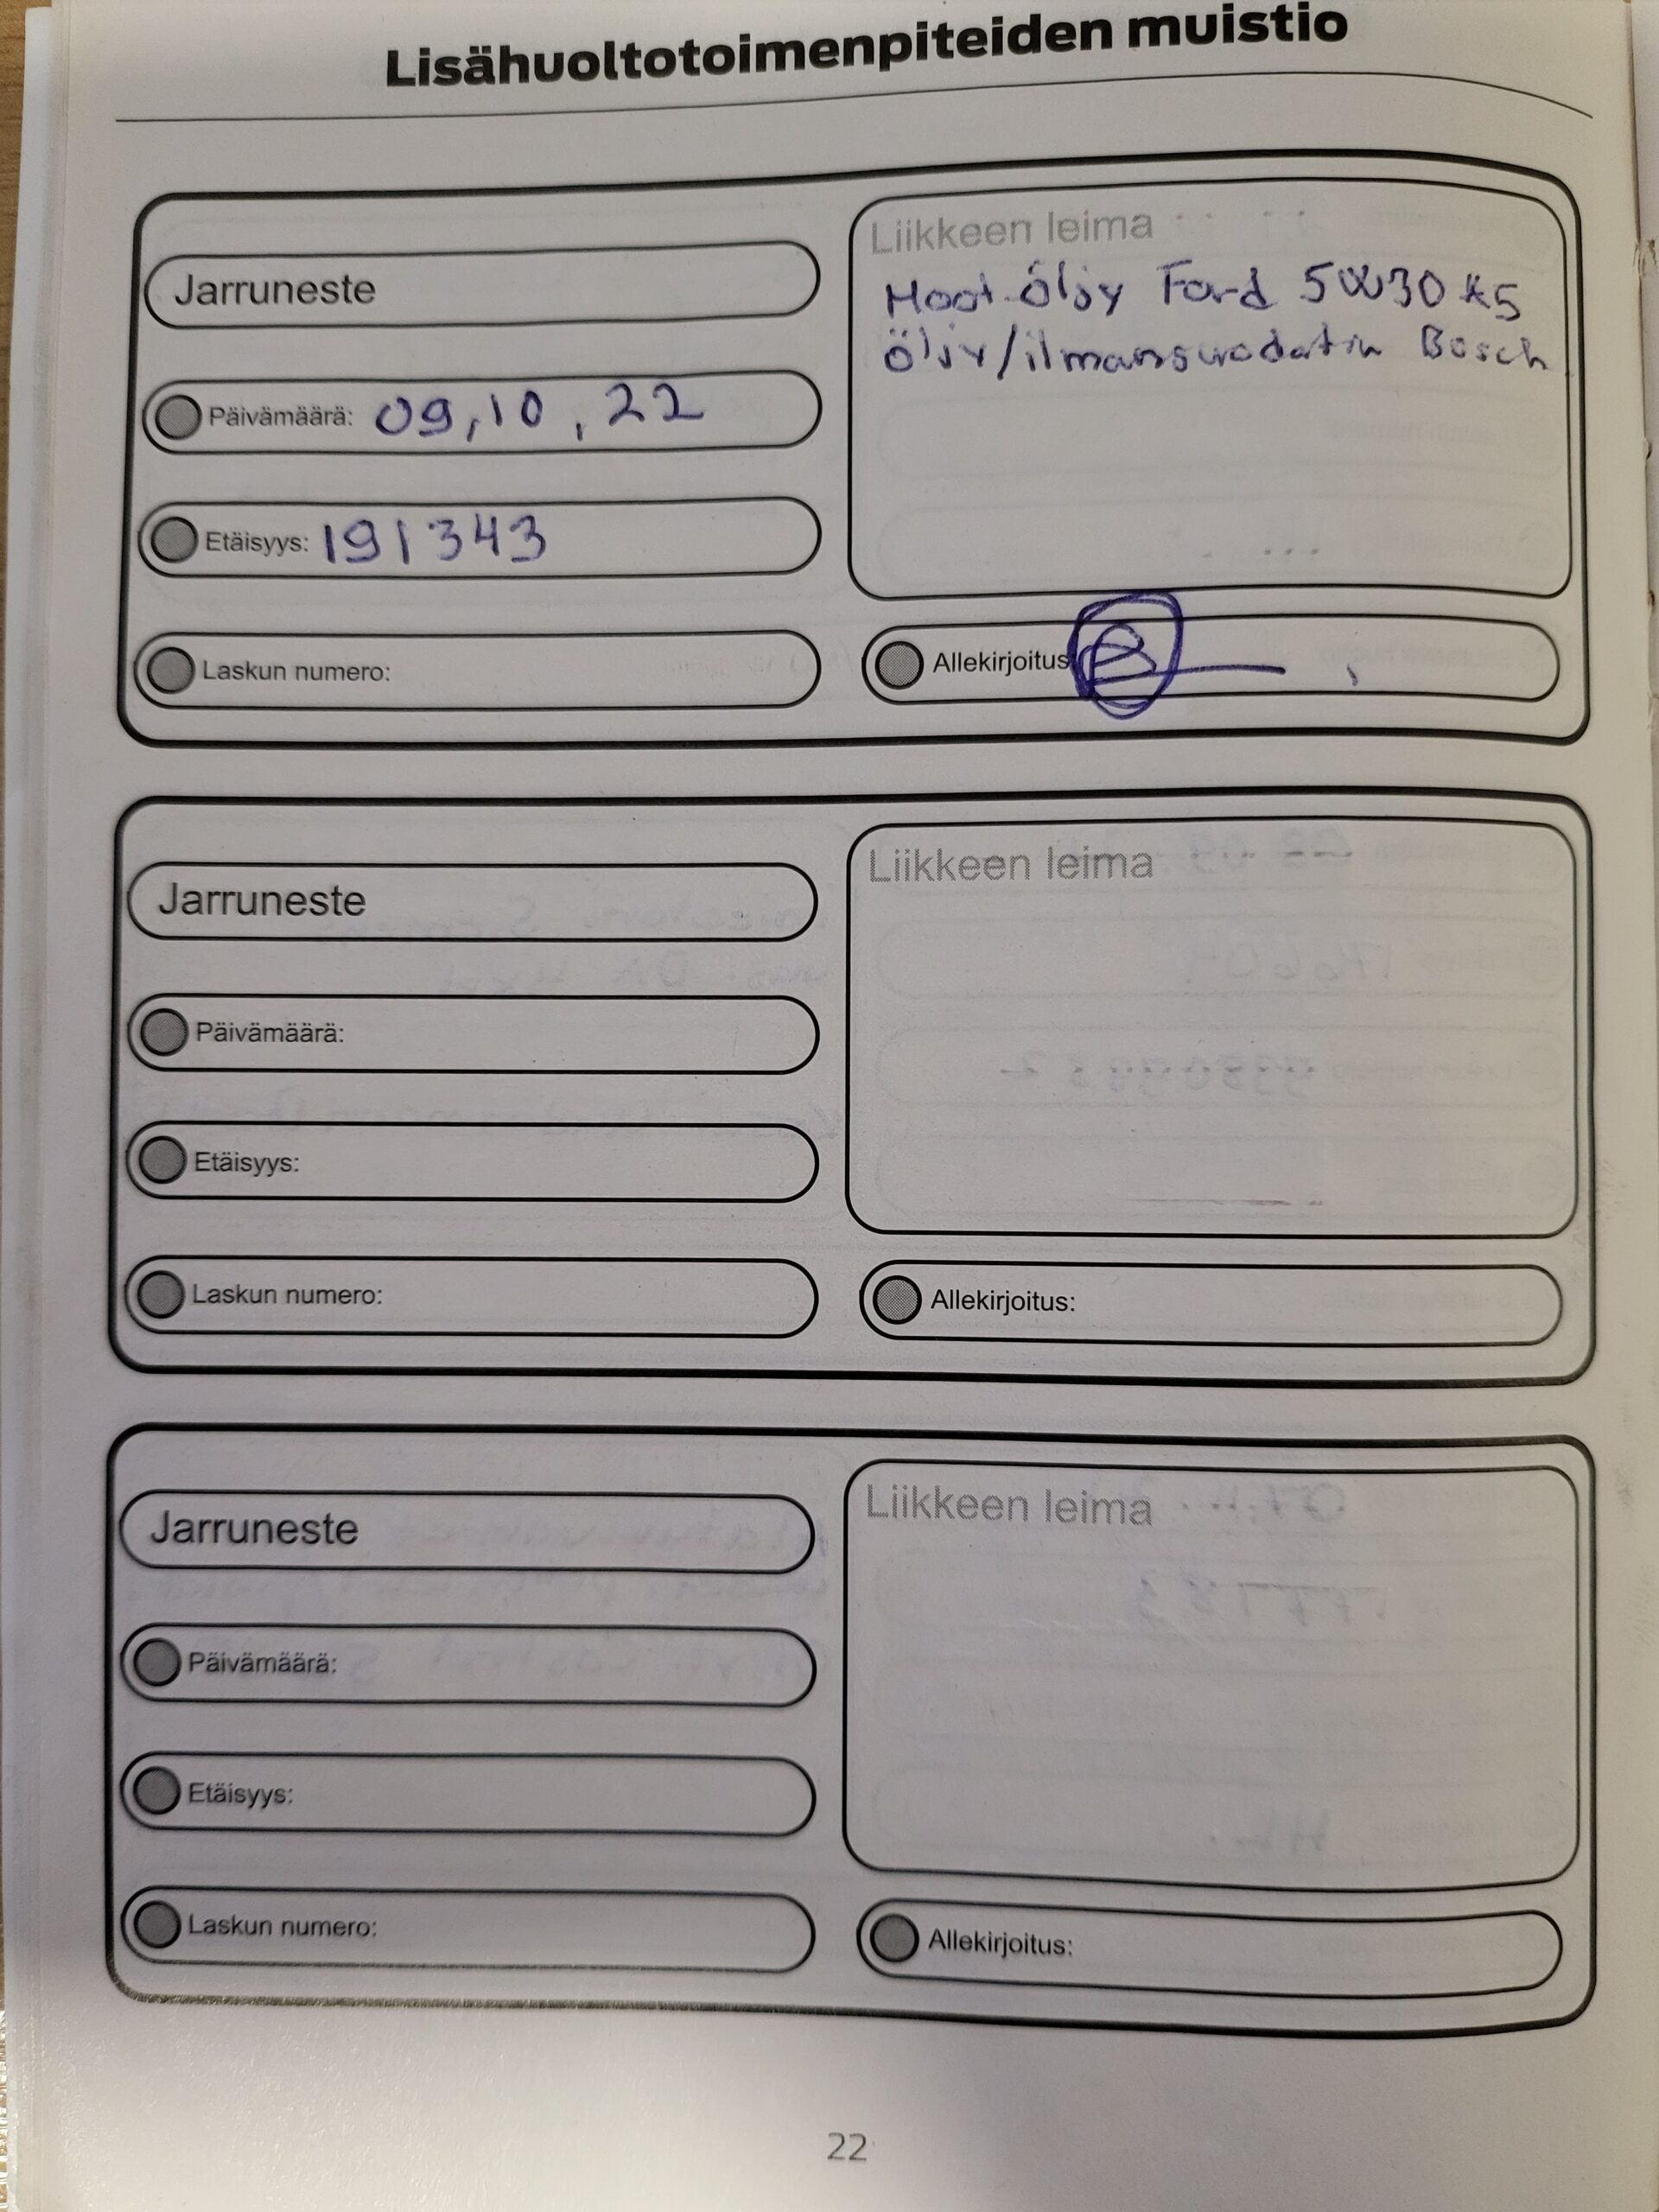 Lisähuoltotoimenpiteiden muistio
Jarruneste
Päivämäärä: 09,10,22
Etäisyys: 191343
Laskun numero:
Liikkeen leima
Moot.Öljy Ford 5W30 A5
Öljy/ilmansuodatin Bosch
Allekirjoitus
Jarruneste
Päivämäärä:
Etäisyys:
Laskun numero:
Liikkeen leima
Allekirjoitus:
Jarruneste
Päivämäärä:
Etäisyys:
Laskun numero:
Liikkeen leima
Allekirjoitus:
22